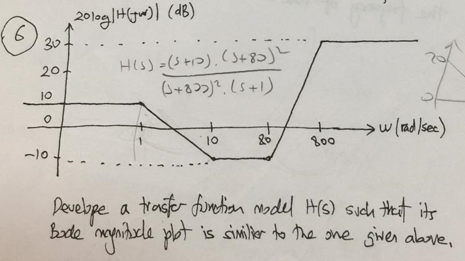 6
20log|H(jw)| (dB)
30
20
20
H(s)=(s+10).(s+80)²
(s+800)².(s+1)
0
10
0
1
10
80
800
w(rad/sec)
-10
Develope a transfer function model H(s) such that its
Bode magnitude plot is similar to the one given above.